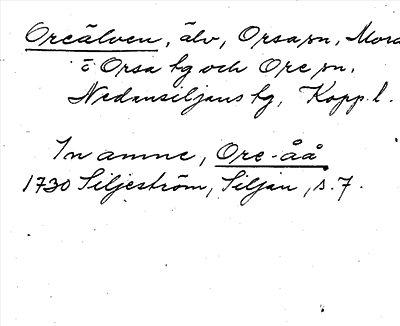 Oreälven, älv, Orsa sn, Mora
o Orsa tg och Ore sn,
Nedansiljans tg, Kopp. l.
In amne, Ore-åå
1730 Siljeström, Siljan, s. 7.